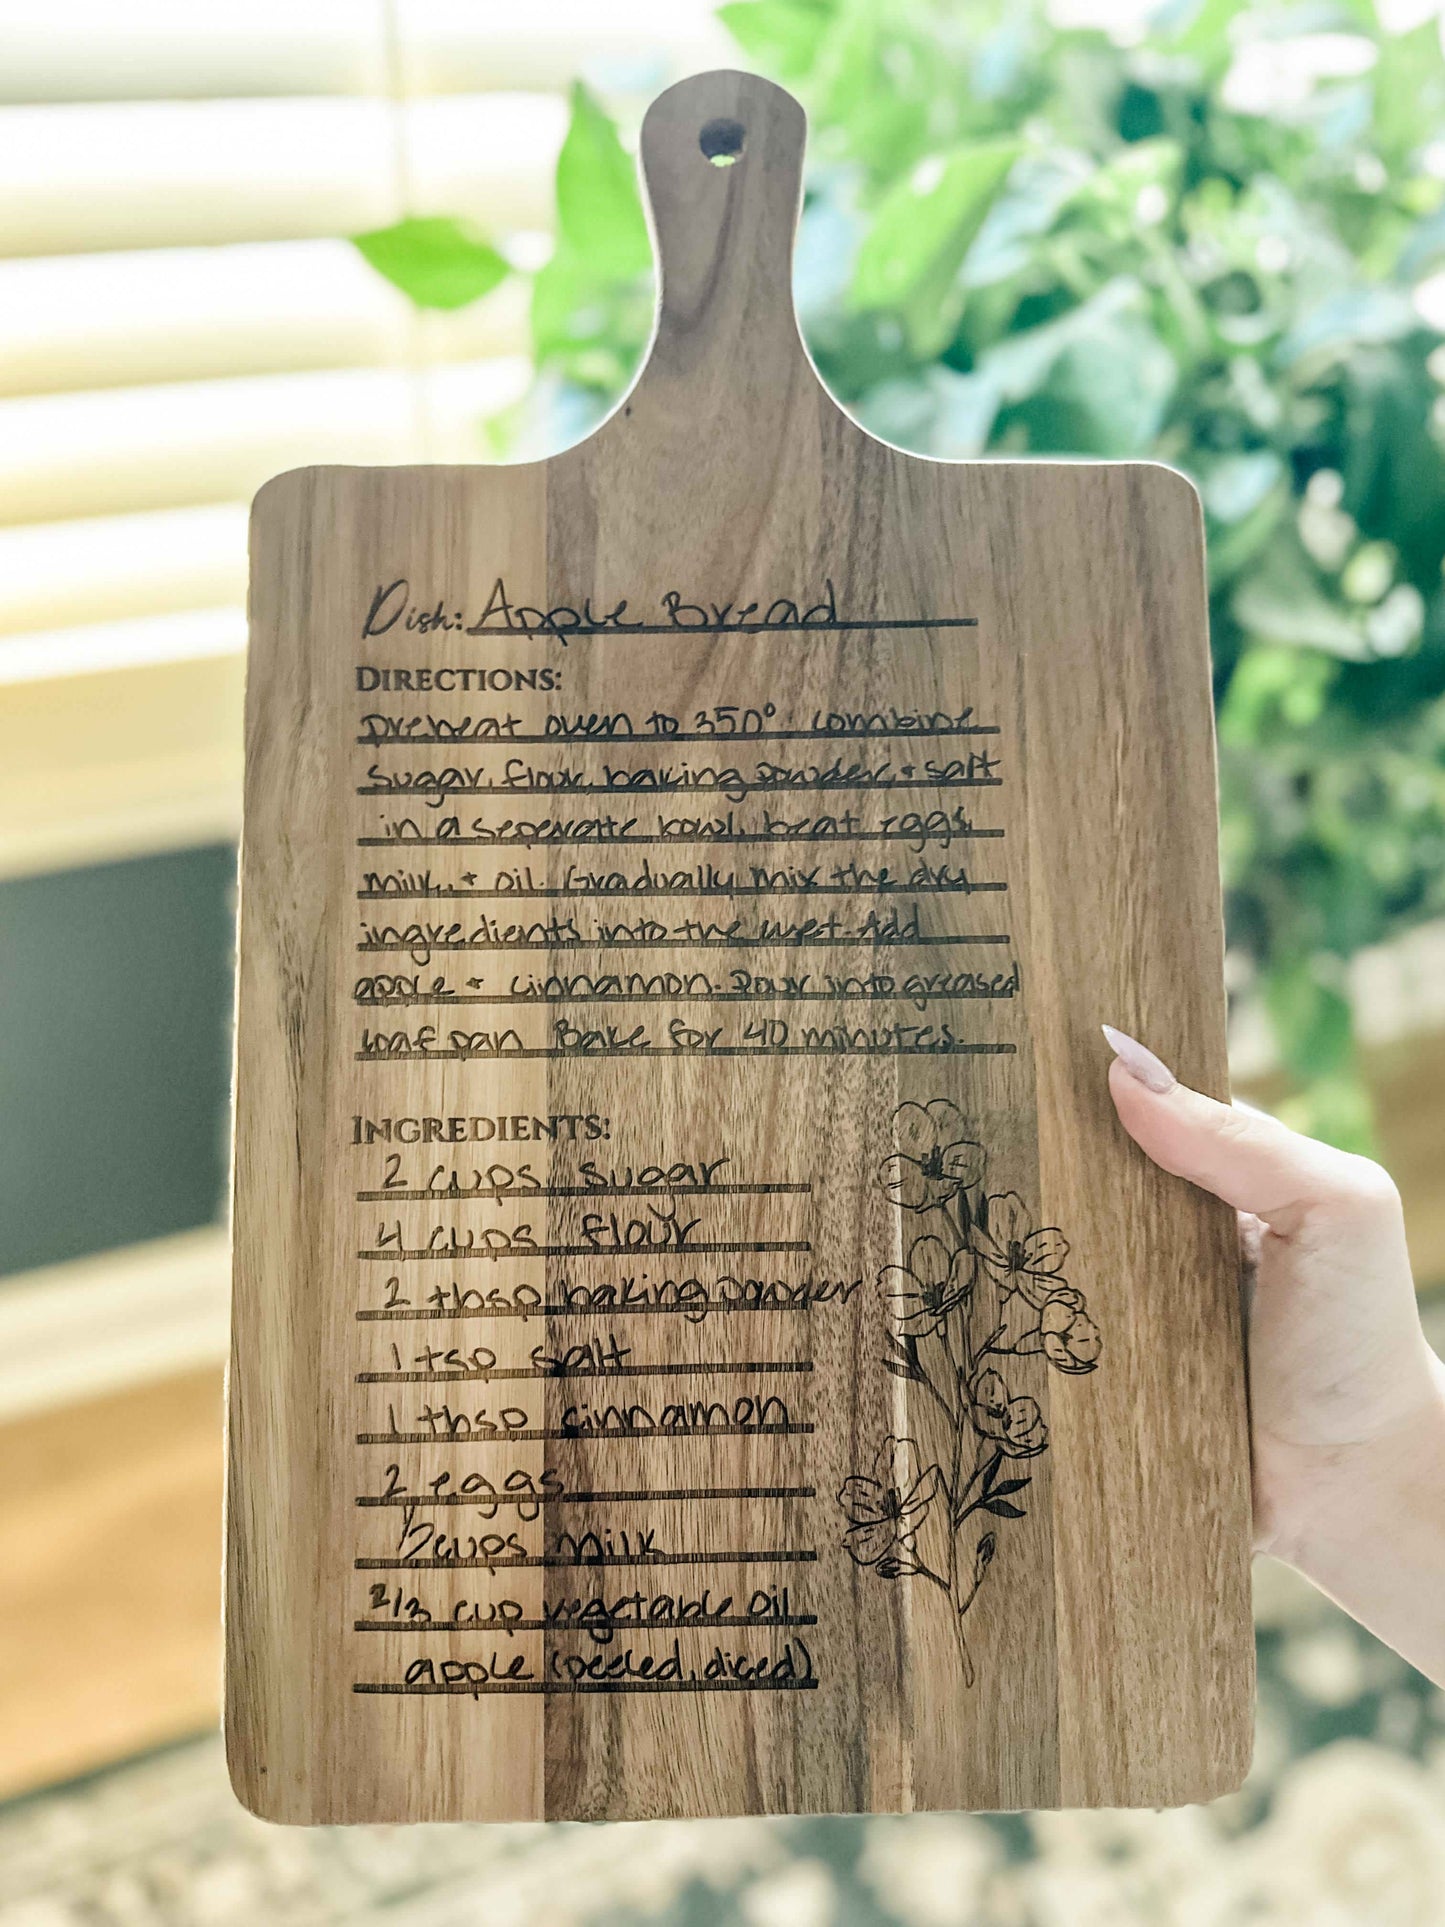 Dish: Apple Bread
DIRECTIONS:
preheat oven to 350° combine
sugar, flour, baking powder, + salt
in a seperate bowl, beat eggs,
milk, + oil. Gradually mix the dry
ingredients into the wet. Add
apple + cinnamon. Pour into greased
loaf pan Bake for 40 minutes.
INGREDIENTS:
2 cups sugar
4 cups flour
2 tbsp baking powder
1 tsp salt
1 tbsp cinnamon
2 eggs
cups milk
2/3 cup vegetable oil
apple (peeled, diced)